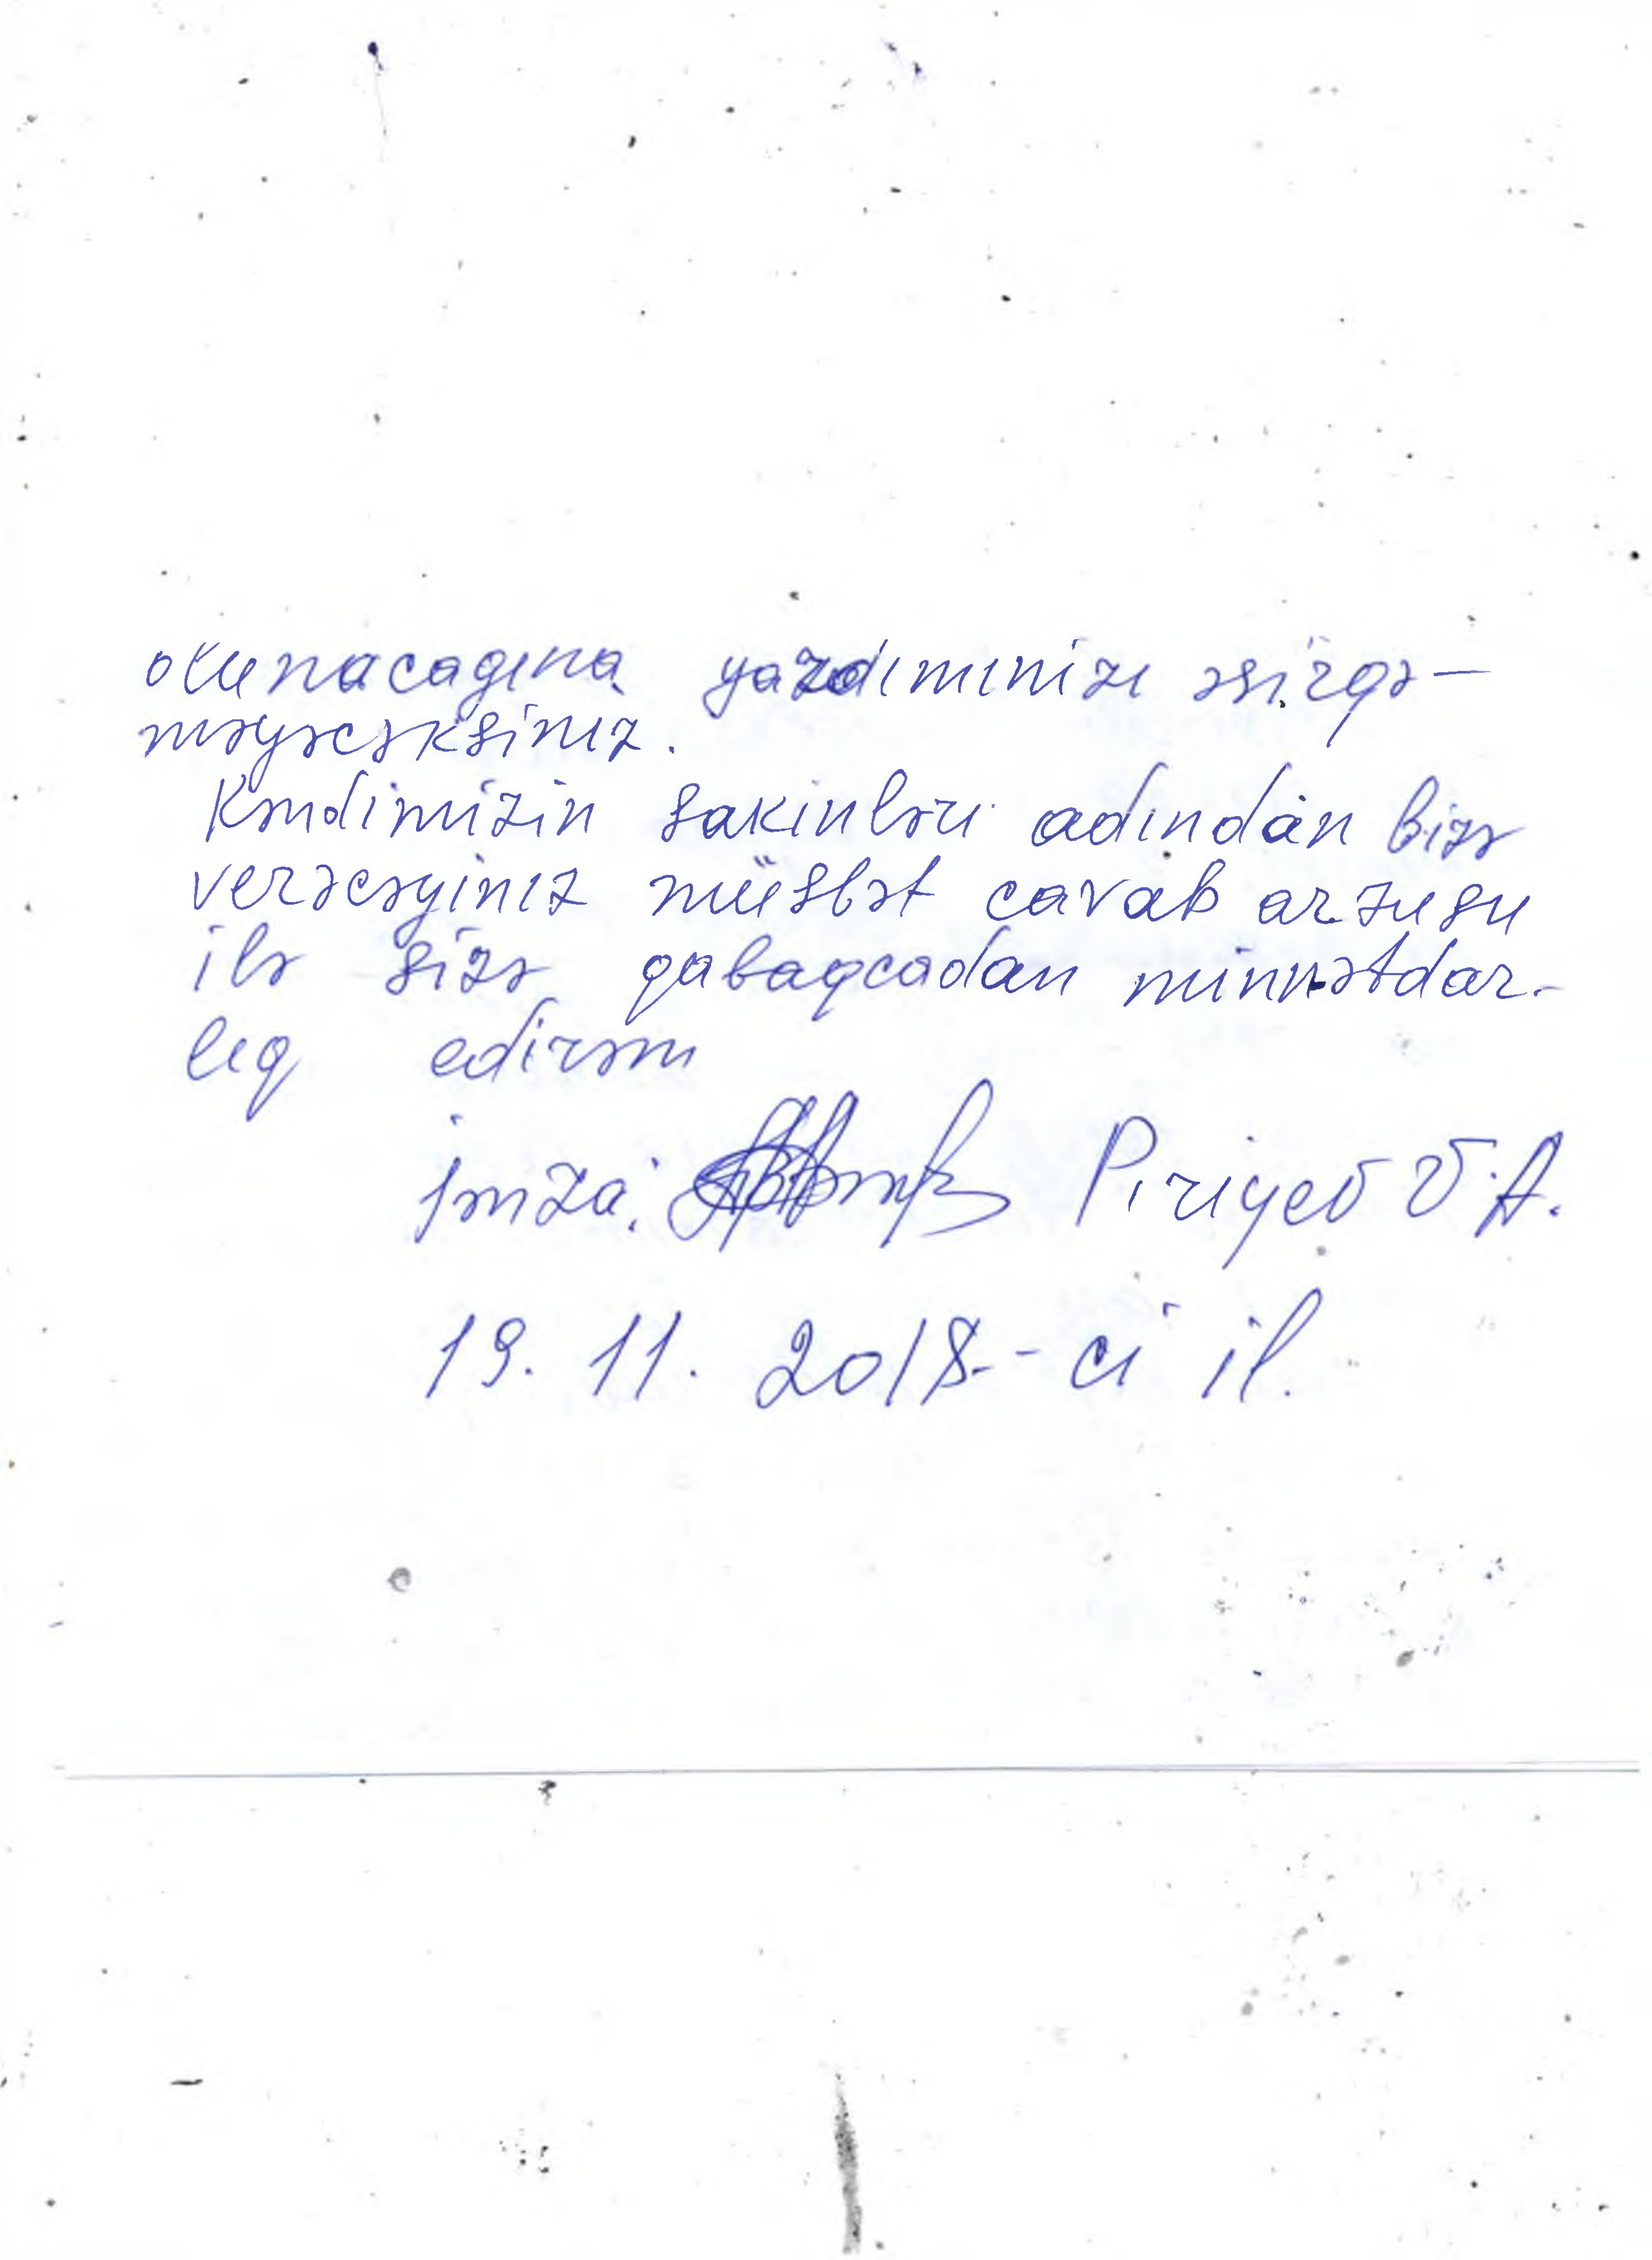 olunacagına yardımınızı əsirgə-
məyəcəksiniz.
Kəndimizin sakinləri adından bizə
verəcəyiniz müsbət cavab arzusu
ilə sizə qabaqcadan minnətdar-
lıq edirəm
İmza: Piriyev V.A.
19. 11. 2018-ci il.